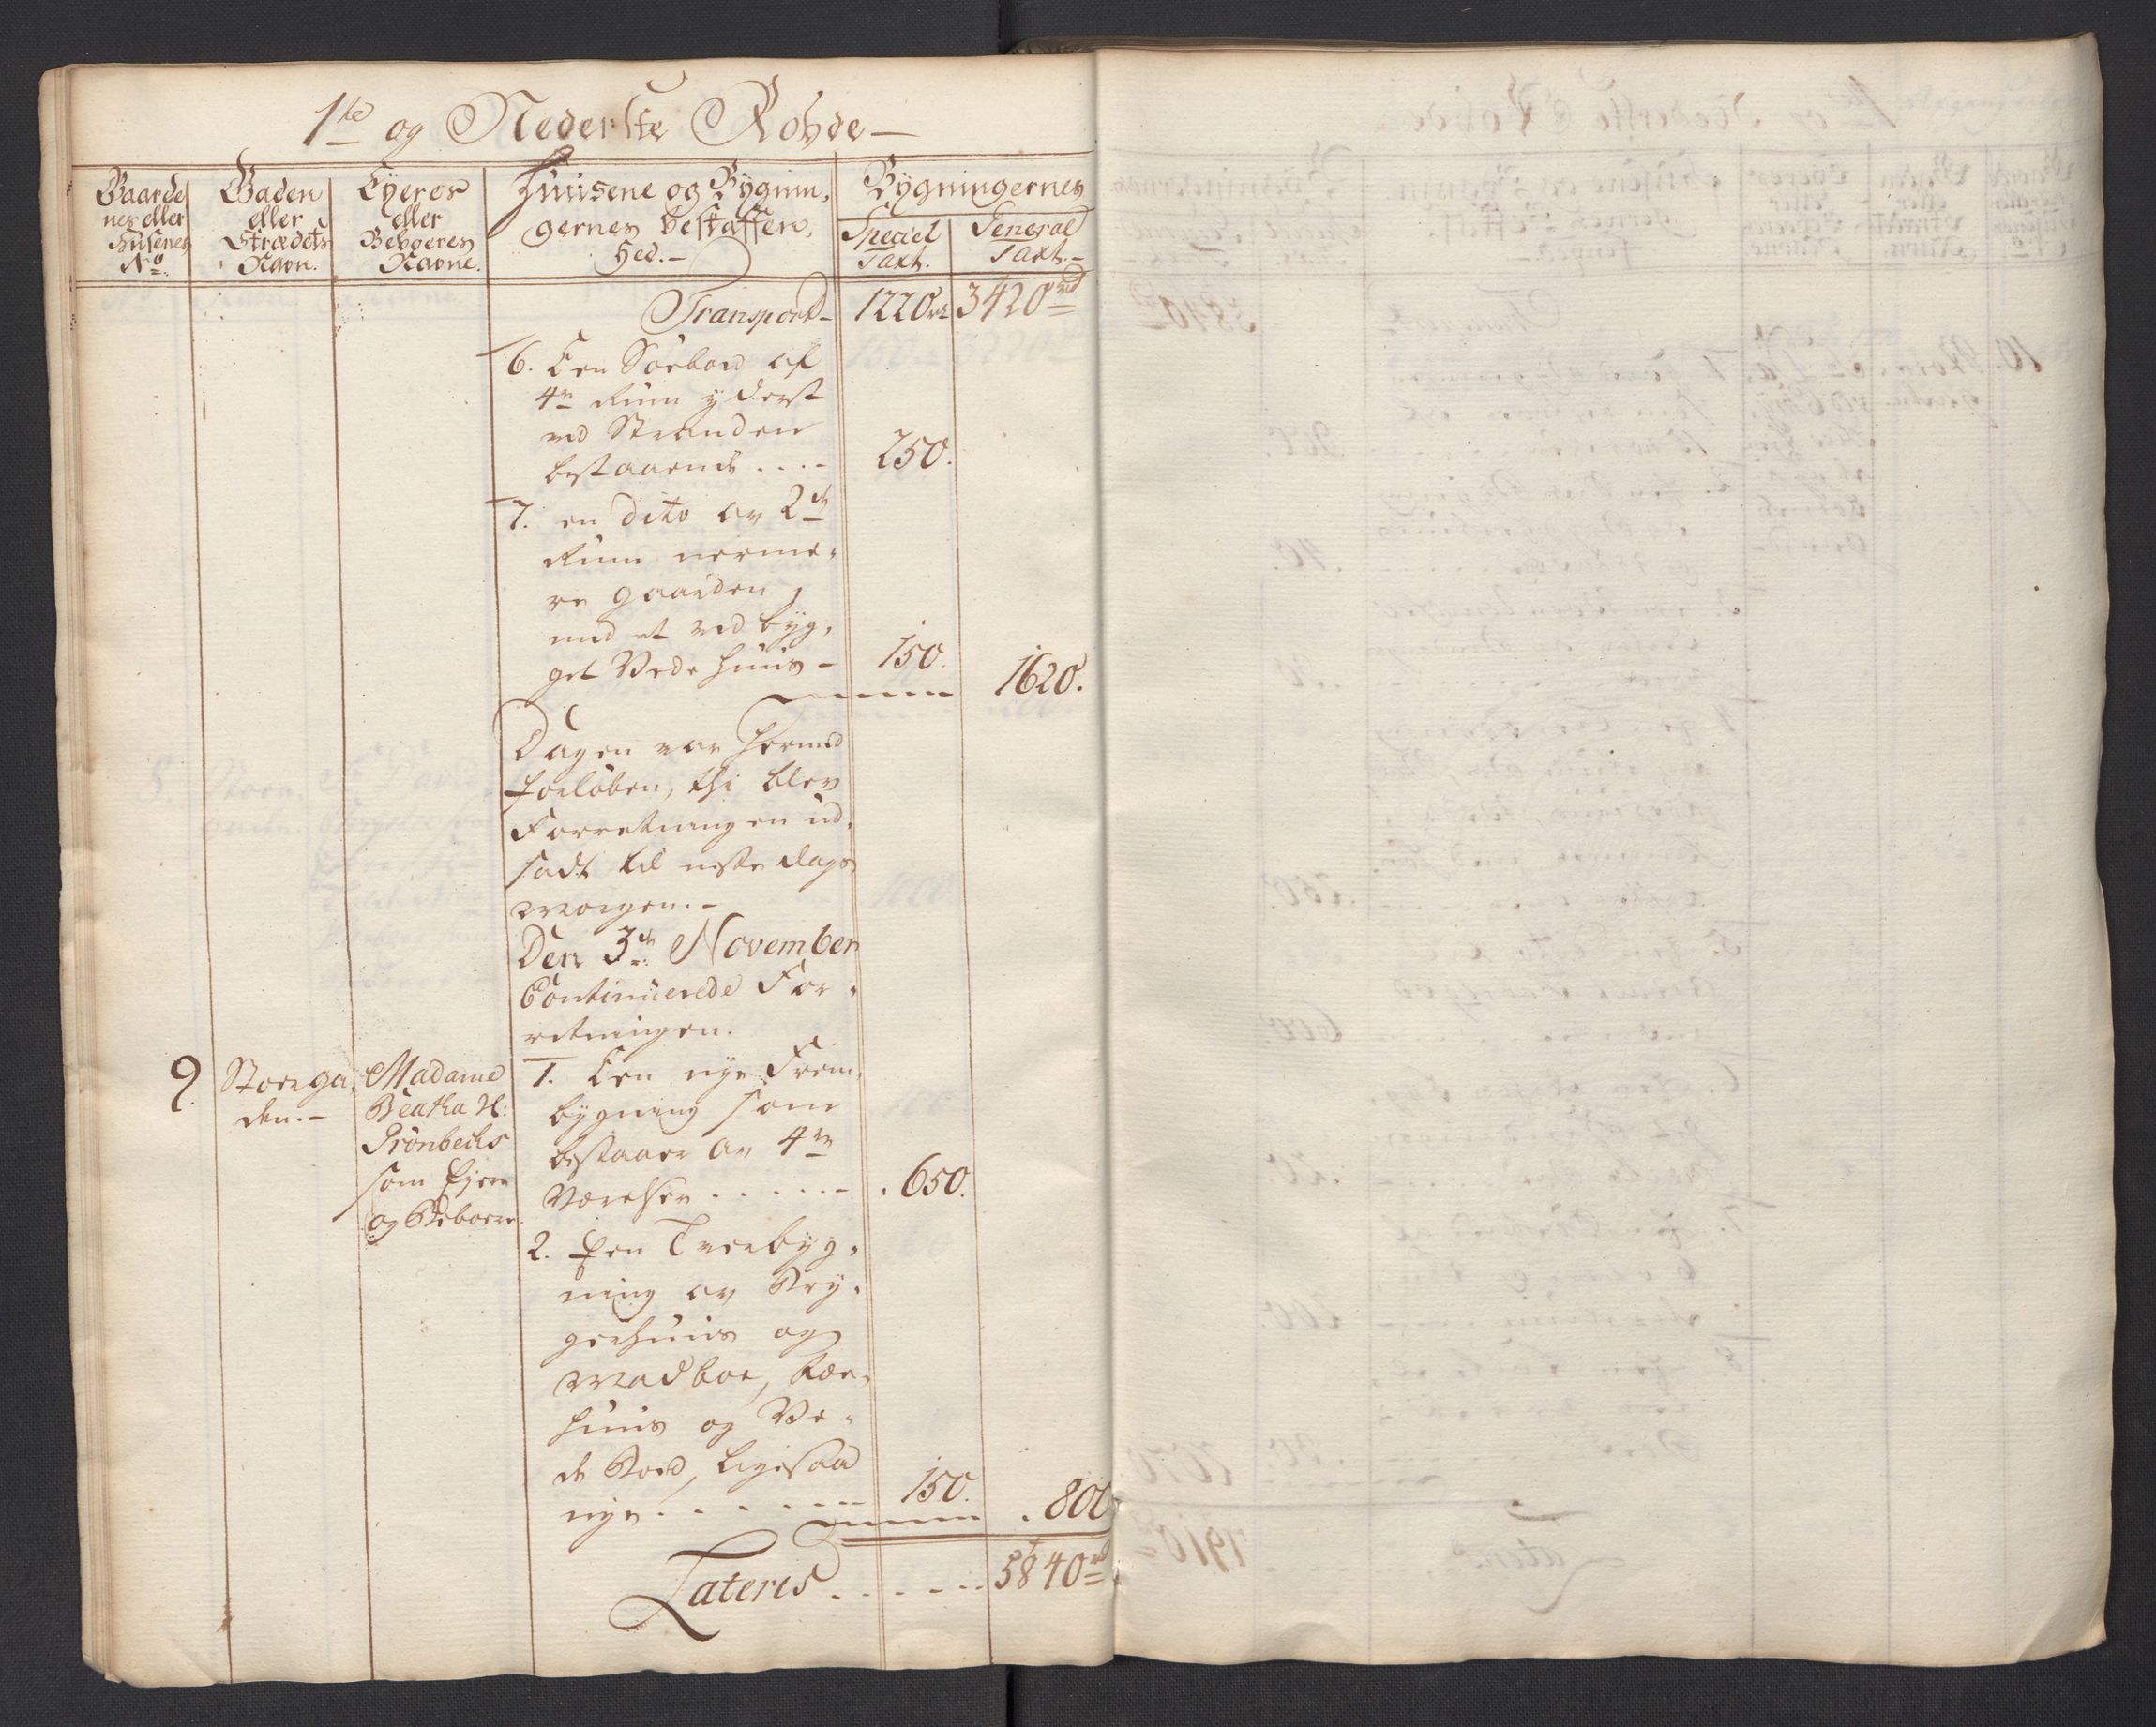 1te og Nederste Rohde
Gaarde
nes eller
Husenes
No.
Gaden
eller
Strædets
Navn.
Eyeres
eller
Beboeres
Navne.
Huusene og Bygnin,
gernes beskaffen,
hed.
Bygningernes
Speciel
Taxt.
General
Taxt.
Transport 1220 rd 3420 rd
6. Een Søeboed af
4re Rum yderst
ved Stranden
bestaaende .... 250.
7. en dito av 2de
Rum nerme,
re gaarden,
med et ved byg,
get Vede huus 150. 1620.
Dagen var hermed
forløben, thi blev
Forretningen ud,
sadt til neste dags
Morgen.
Den 3de November
Continuerede For,
retningen.
9. Store ga,
den.
Madame
Beatha H:
Grønbechs
som Ejere
og Beboere.
1. Een nye Frem,
bygning som
bestaaer av 4re
Værelser ...... 650.
2. Een Tverbyg,
ning av Bryg,
gerhuus og
Madboe, Røe,
huus og Ve,
de Boed, ligesaa
nye ...... 150. 800
Lateris ..... 5840 rd